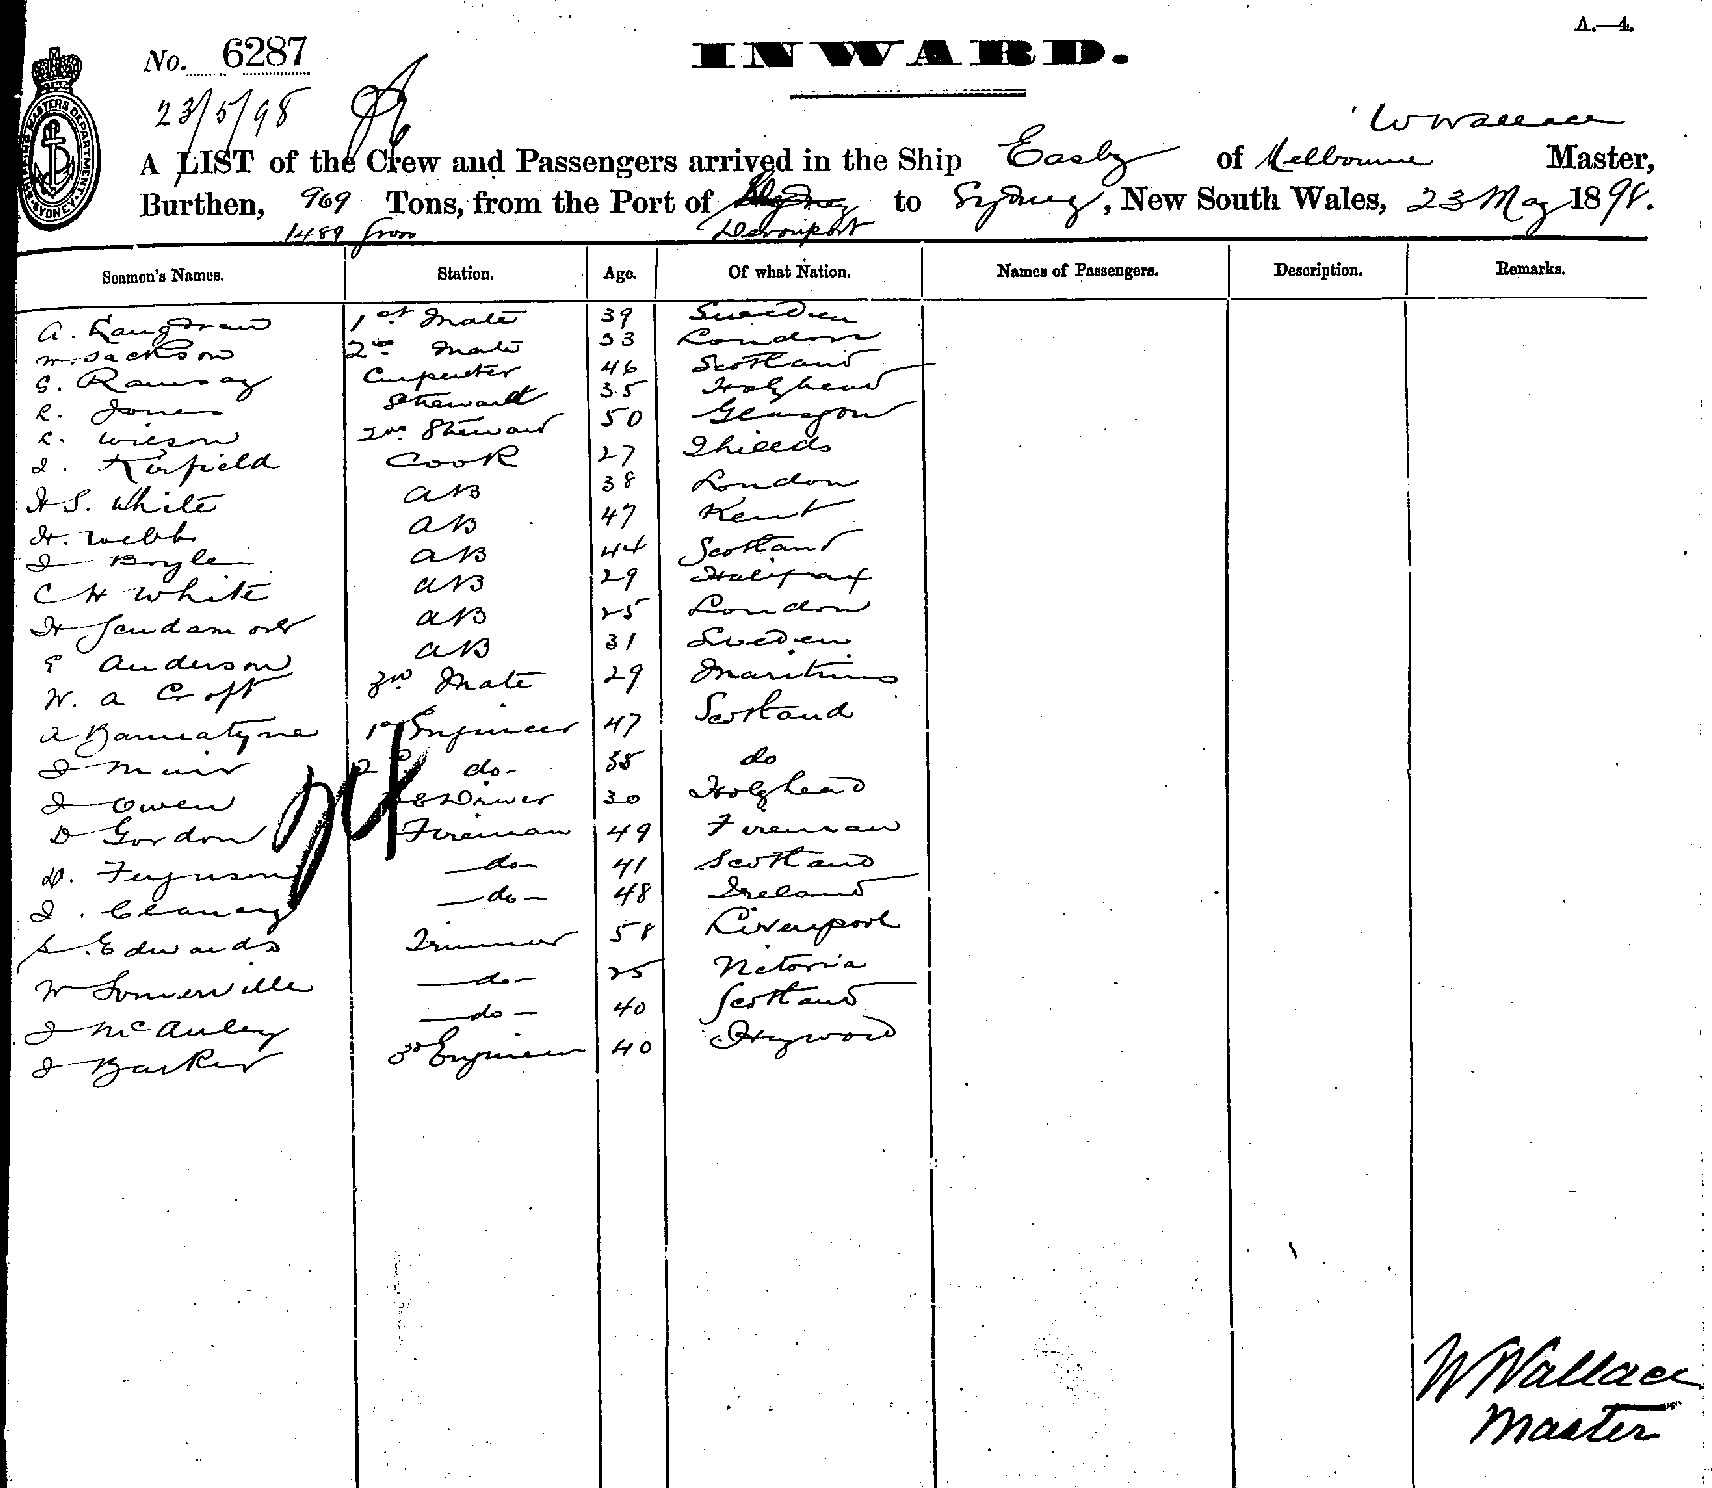 A.—4.
No. 6287
INWARD.
23/5/98
W Wallace
A LIST of the Crew and Passengers arrived in the Ship Easby of Melbourne Master,
Burthen, 969 Tons, from the Port of Sydney to Sydney, New South Wales, 23 May 1898.
1489 gross Devonport
Seamen's Names. Station. Age. Of what Nation. Names of Passengers. Description. Remarks.
A. 1st Mate 39 Sweden
W. Jackson 2nd Mate 33 London
G. Ramsay Carpenter 46 Scotland
R. Jones Stheward 35 Holyhead
R. Wilson 2nd Steward 50 Glasgow
J. Kirfield Cook 27 Shields
H S. White AB 38 London
H. Webb AB 47 Kent
J Boyle AB 44 Scotland
C H White AB 29 Halifax
H Scudamore AB 25 London
E Anderson AB 31 Sweden
W. A Croft 3rd Mate 29 Mauritius
A Bannatyne 1st Engineer 47 Scotland
J Muir 2 do- 38 do
J Owen Driver 30 Holyhead
D Gordon Fireman 49 Fireman
D. Ferguson —do— 41 Scotland
J. Clancy —do— 48 Ireland
S. Edwards Trimmer 58 Liverpool
W Somerville —do— 25 Victoria
J McAuley —do— 40 Scotland
J Barker 3rd Engineer 40 Heywood
W Wallace
Master